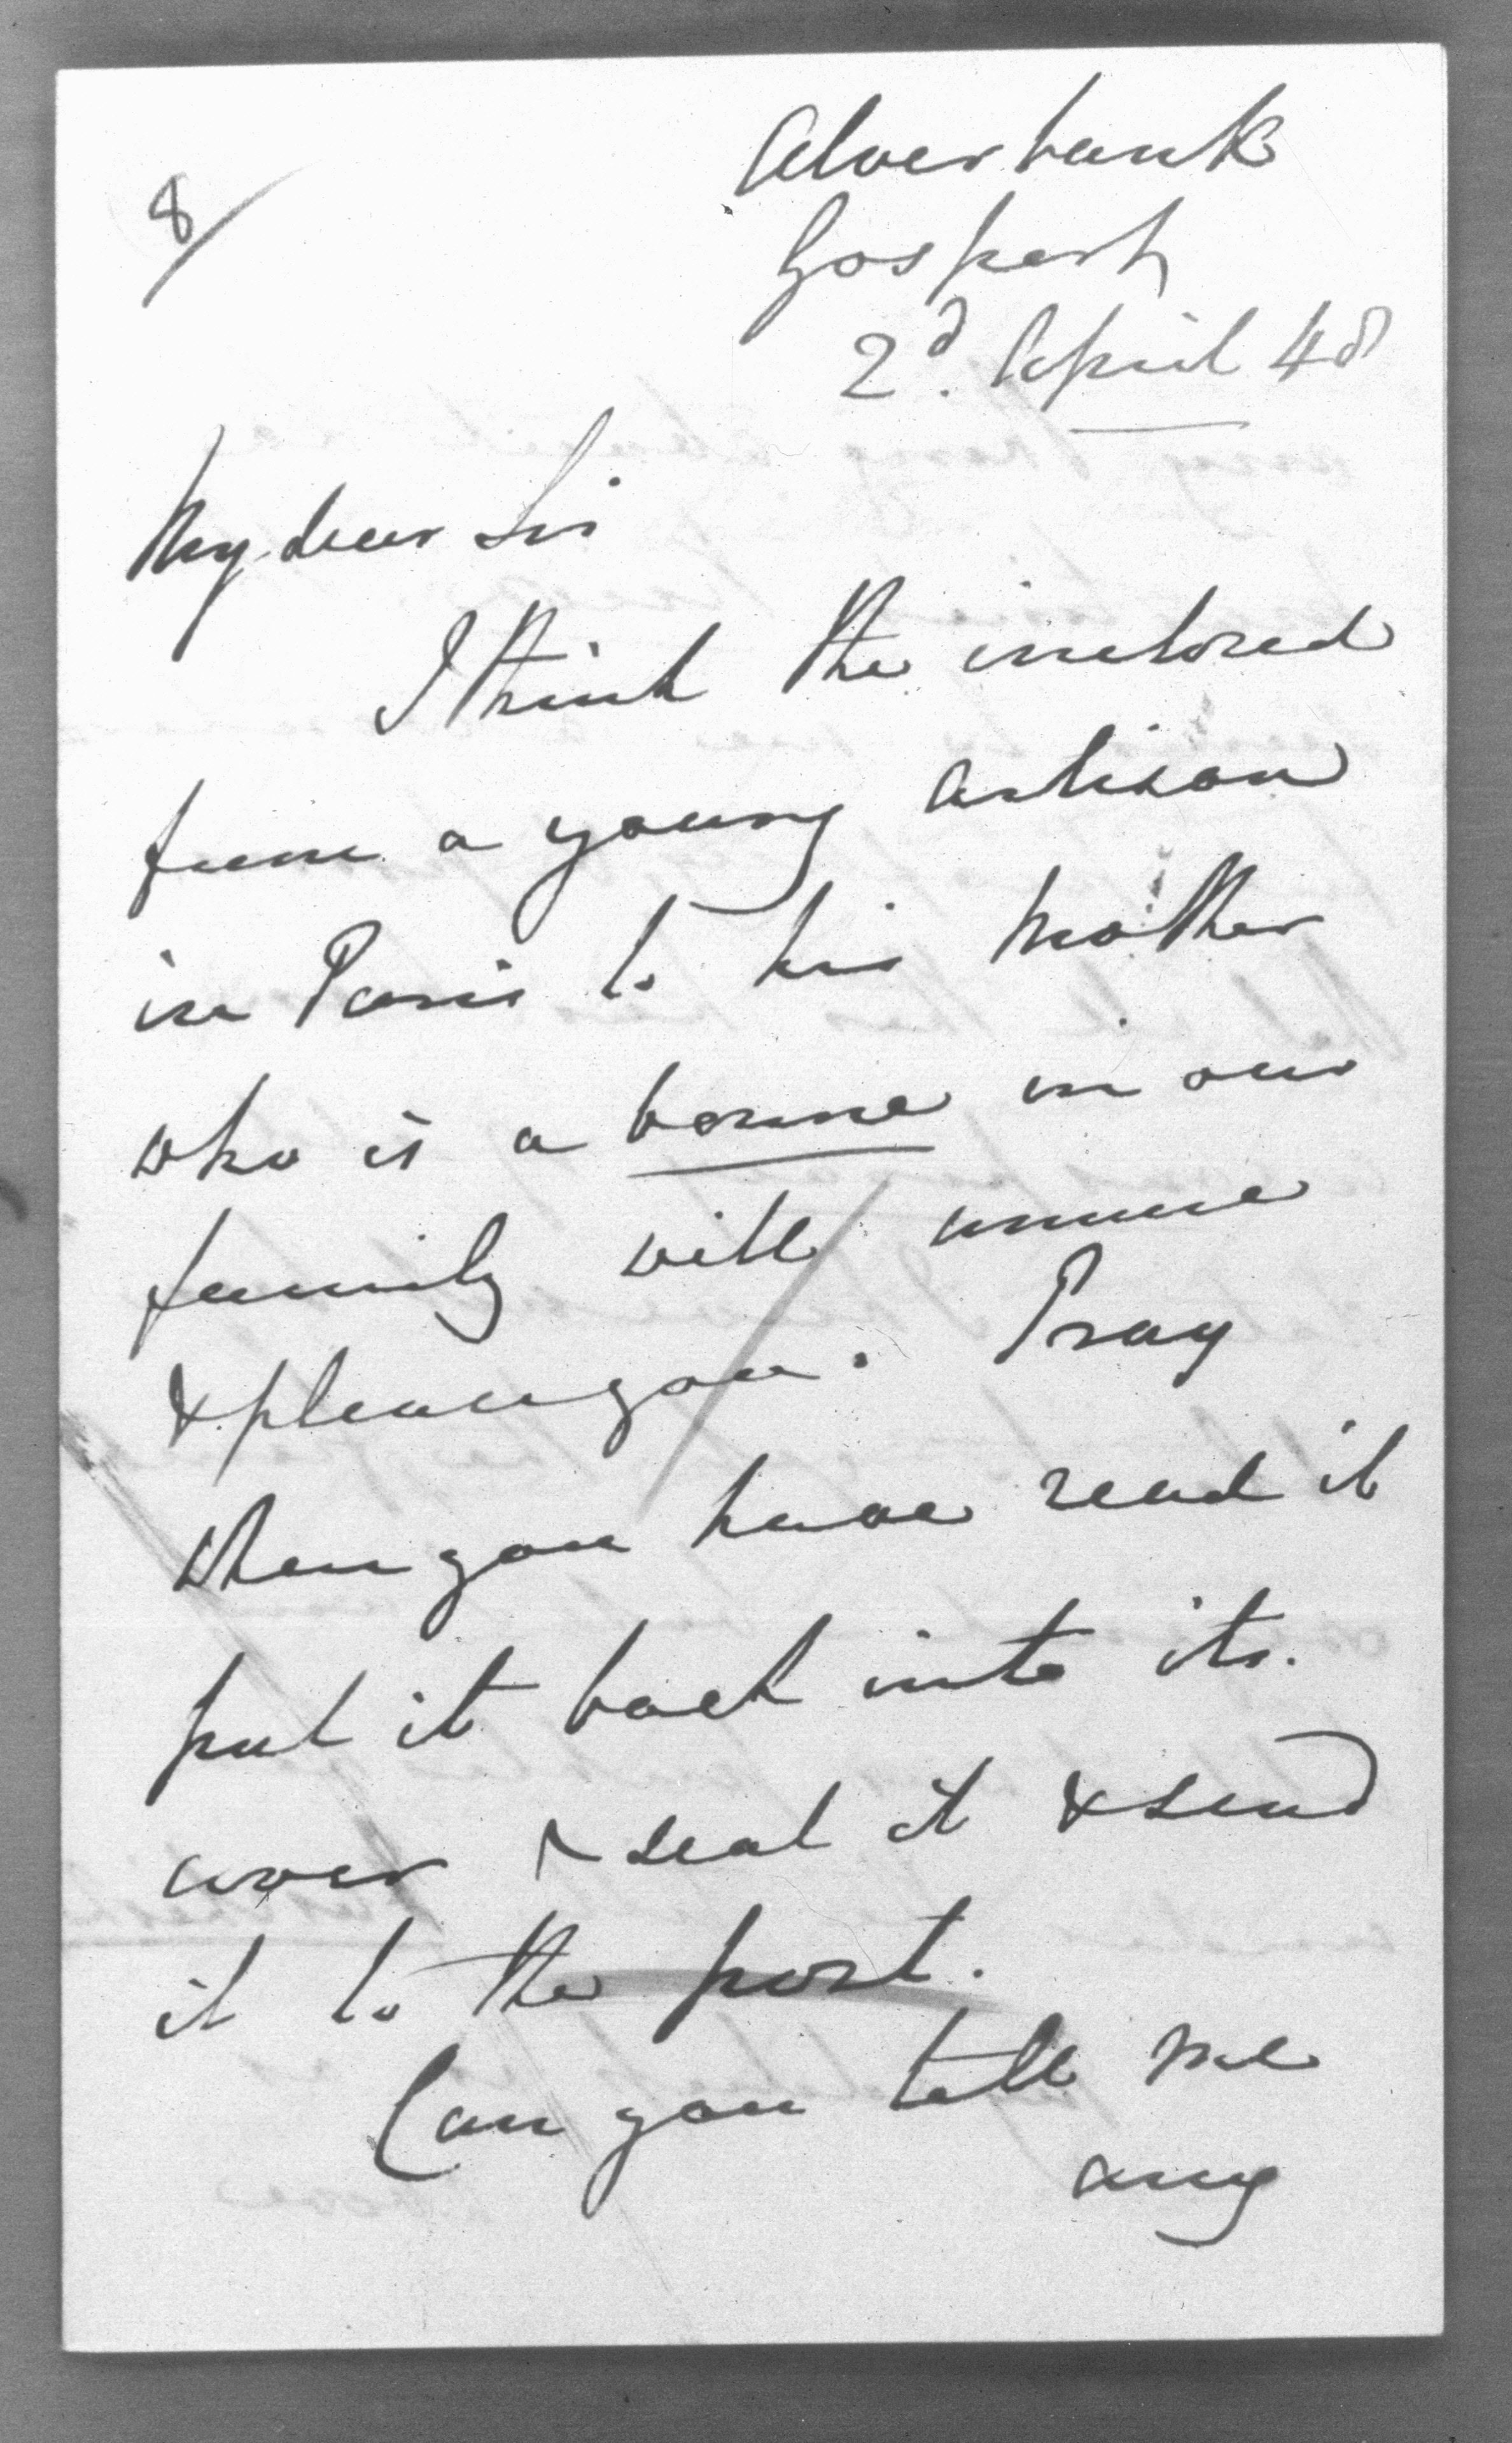 8/
Alverbank
Gosport
2d. April 48
My dear Sir
I think the inclosed
from a young artisan
in Paris to his Mother
who is a bonne in our
family will amuse
& please you. Pray
when you have read it
put it back into its
cover & seal it & send
it to the post.
Can you tell me
any